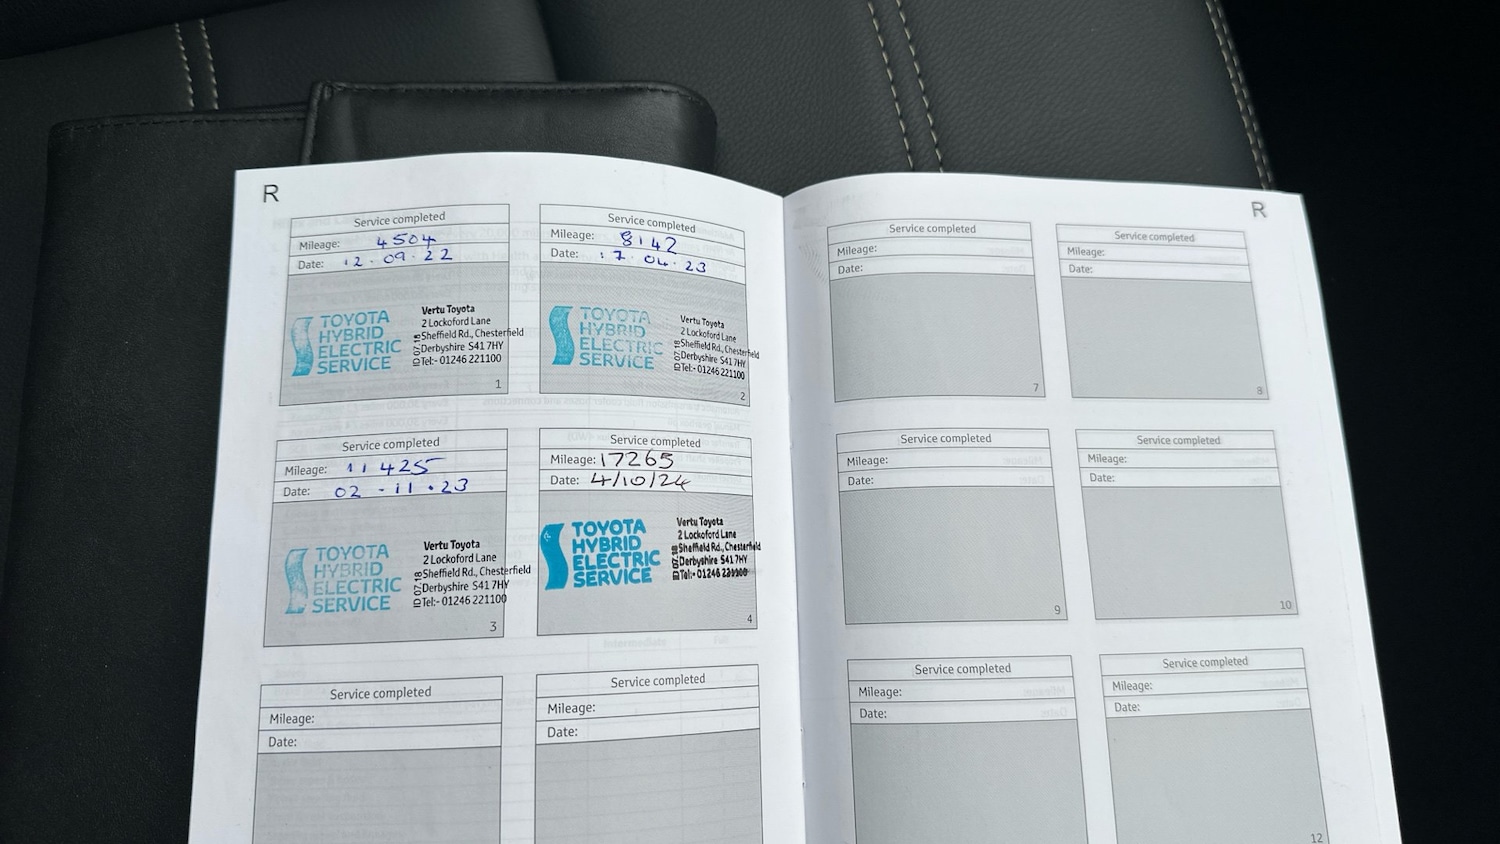 R
Service completed
Mileage: 4504
Date: 12.09.22
TOYOTA
HYBRID
ELECTRIC
SERVICE
ID 07.18
Vertu Toyota
2 Lockoford Lane
Sheffield Rd., Chesterfield
Derbyshire S41 7HY
Tel:- 01246 221100
1
Service completed
Mileage: 8142
Date: 17.04.23
TOYOTA
HYBRID
ELECTRIC
SERVICE
ID 07.18
Vertu Toyota
2 Lockoford Lane
Sheffield Rd., Chesterfield
Derbyshire S41 7HY
Tel:- 01246 221100
2
Service completed
Mileage: 11425
Date: 02.11.23
TOYOTA
HYBRID
ELECTRIC
SERVICE
ID 07.18
Vertu Toyota
2 Lockoford Lane
Sheffield Rd., Chesterfield
Derbyshire S41 7HY
Tel:- 01246 221100
3
Service completed
Mileage: 17265
Date: 4/10/24
TOYOTA
HYBRID
ELECTRIC
SERVICE
ID 07.18
Vertu Toyota
2 Lockoford Lane
Sheffield Rd., Chesterfield
Derbyshire S41 7HY
Tel:- 01246 221100
4
Service completed
Mileage:
Date:
Service completed
Mileage:
Date:
R
Service completed
Mileage:
Date:
7
Service completed
Mileage:
Date:
8
Service completed
Mileage:
Date:
9
Service completed
Mileage:
Date:
10
Service completed
Mileage:
Date:
Service completed
Mileage:
Date:
12